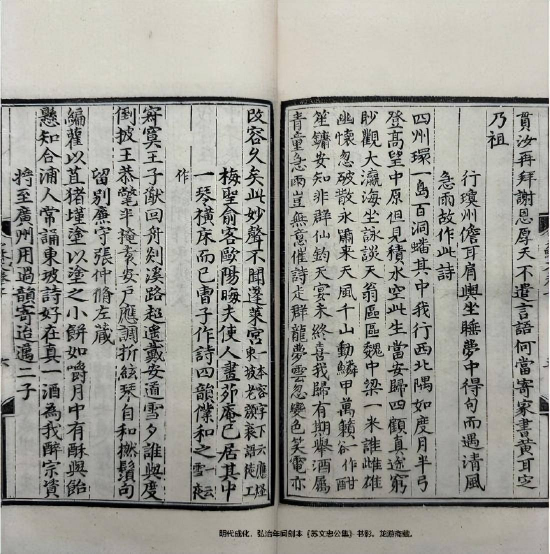 貫汝再拜謝恩厚天不遣言語何當寄家書黃耳定
乃祖
行瓊州儋耳肩輿坐睡夢中得句而遇清風
急雨故作此詩
四州環一島百洞蟠其中我行西北隅如度月半弓
登高望中原但見積水空此生當安歸四顧真途窮
眇觀大瀛海坐詠談天翁區區魏中梁一米誰雌雄
幽懷忽破散永嘯來天風千山動鱗甲萬籟谷作酣
笙鏞安知非群仙鈞天宴未終喜我歸有期舉酒屬
青童急雨豈無意催詩走群龍夢雲忽變色笑電亦
改容久矣此妙聲不聞蓬萊宮一本容字下云應怪東坡老顏衰語徒工
梅聖俞客歐陽晦夫使人畫茆庵已居其中
一琴橫床而已曹子作詩四韻僕和之一云雪夜
作
寂寞王子猷回舟剡溪路超遙戴安道雪夕誰與度
倒披王恭氅半掩袁安戶應調折絃琴自和撚鬚句
留別廉守張仲脩左藏
編雚以苴豬墐塗以塗之小餅如嚼月中有酥與飴
懸知合浦人常誦東坡詩好在真一酒為我醉宗資
將至廣州用過韻寄迨邁二子
明代成化、弘治年间刻本《苏文忠公集》书影。龙游衙藏。